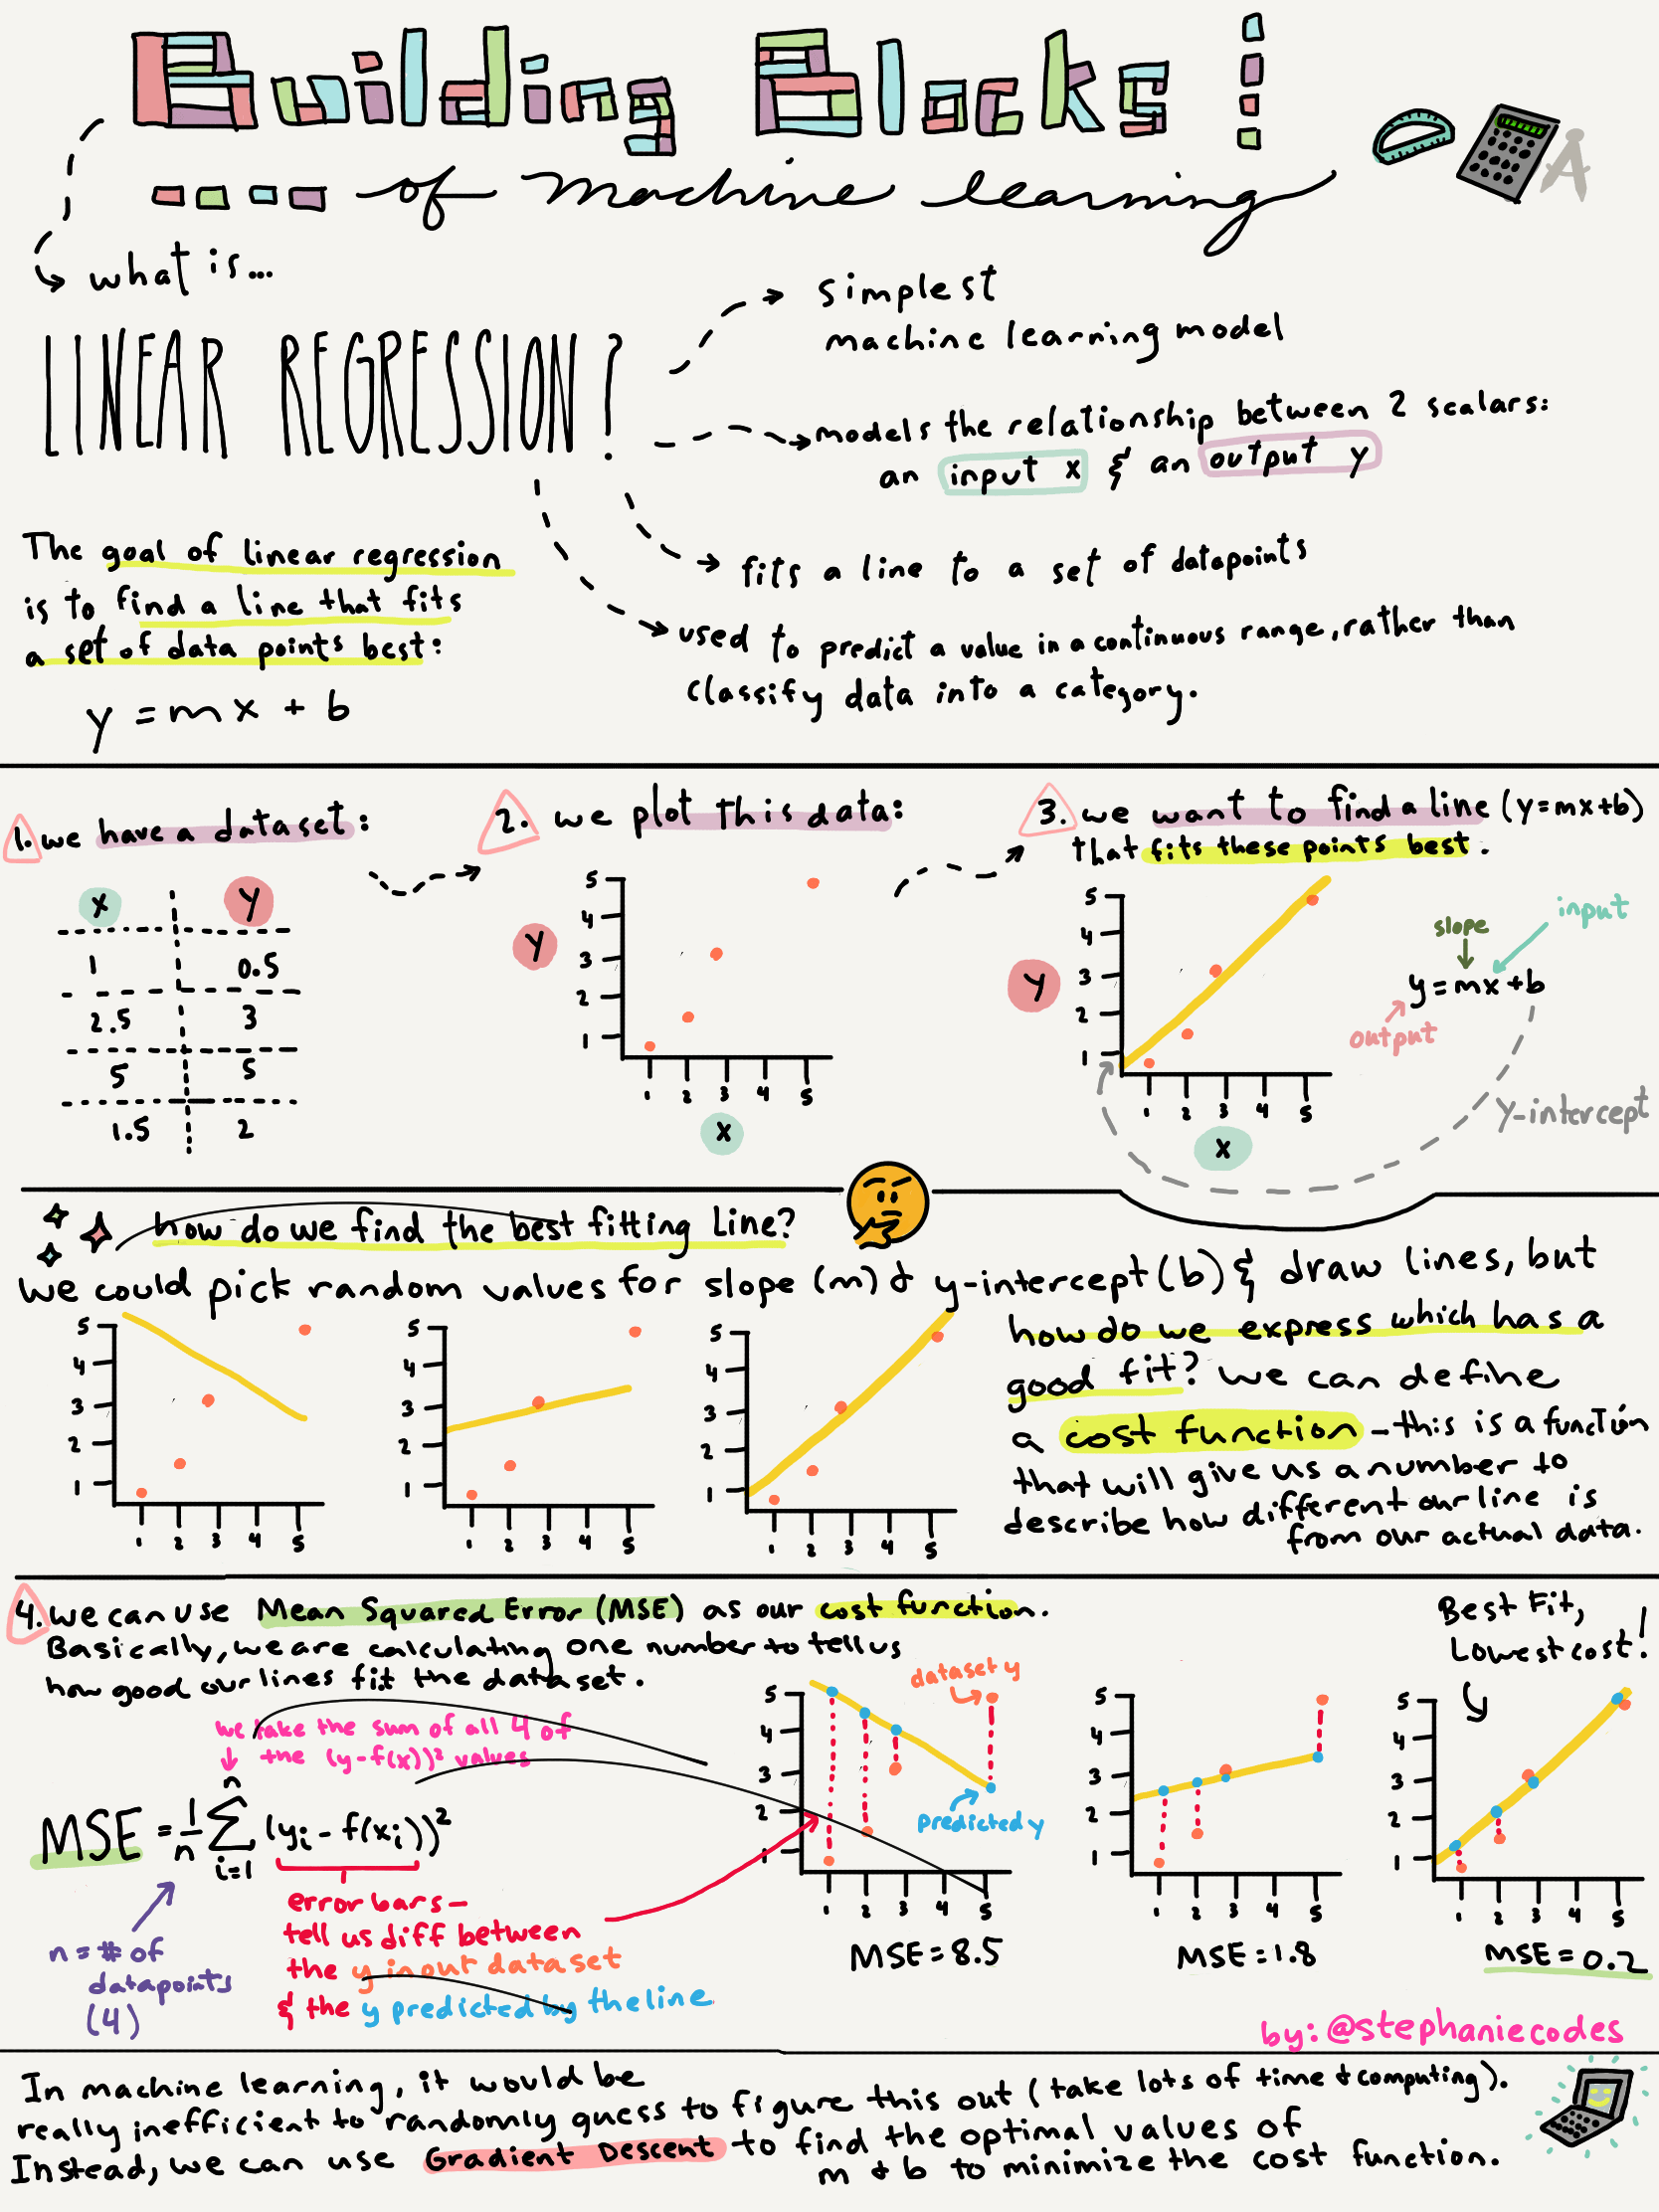 Building Blocks!
of machine learning
what is...
LINEAR REGRESSION?
simplest
machine learning model
models the relationship between 2 scalars:
an input x & an output y
fits a line to a set of datapoints
used to predict a value in a continuous range, rather than
classify data into a category.
The goal of linear regression
is to find a line that fits
a set of data points best:
y = mx + b
1. we have a dataset:
x y
1 0.5
2.5 3
5 5
1.5 2
2. we plot this data:
5
4
3
2
1
y
1 2 3 4 5
x
3. we want to find a line (y=mx+b)
that fits these points best.
5
4
3
2
1
y
1 2 3 4 5
x
input
slope
y = mx + b
output
y-intercept
how do we find the best fitting line?
we could pick random values for slope (m) & y-intercept (b) & draw lines, but
how do we express which has a
good fit? we can define
a cost function - this is a function
that will give us a number to
describe how different our line is
from our actual data.
5
4
3
2
1
1 2 3 4 5
5
4
3
2
1
1 2 3 4 5
5
4
3
2
1
1 2 3 4 5
4. we can use Mean Squared Error (MSE) as our cost function.
Basically, we are calculating one number to tell us
how good our lines fit the dataset.
we take the sum of all 4 of
the (y-f(x))² values
MSE = 1/n n∑i=1 (yi - f(xi))²
n = # of
datapoints
(4)
error bars -
tell us diff between
the y input dataset
& the y predicted by the line
dataset y
predicted y
5
4
3
2
1
1 2 3 4 5
MSE = 8.5
5
4
3
2
1
1 2 3 4 5
MSE = 1.8
Best Fit,
Lowest cost!
5
4
3
2
1
1 2 3 4 5
MSE = 0.2
by: @stephaniecodes
In machine learning, it would be
really inefficient to randomly guess to figure this out (take lots of time & computing).
Instead, we can use Gradient Descent to find the optimal values of
m & b to minimize the cost function.